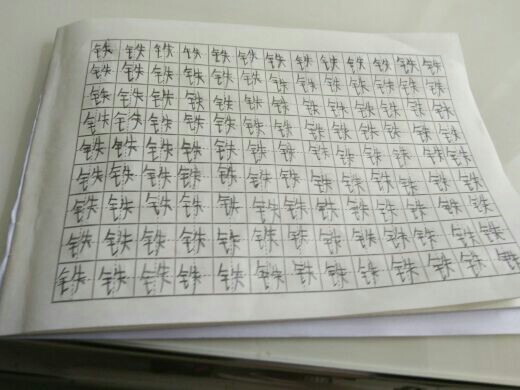 铁铁铁铁铁铁铁铁铁铁铁铁铁
铁铁铁铁铁铁铁铁铁铁铁铁铁
铁铁铁铁铁铁铁铁铁铁铁铁铁
铁铁铁铁铁铁铁铁铁铁铁铁铁
铁铁铁铁铁铁铁铁铁铁铁铁铁
铁铁铁铁铁铁铁铁铁铁铁铁铁
铁铁铁铁铁铁铁铁铁铁铁铁铁
铁铁铁铁铁铁铁铁铁铁铁铁铁
铁铁铁铁铁铁铁铁铁铁铁铁铁